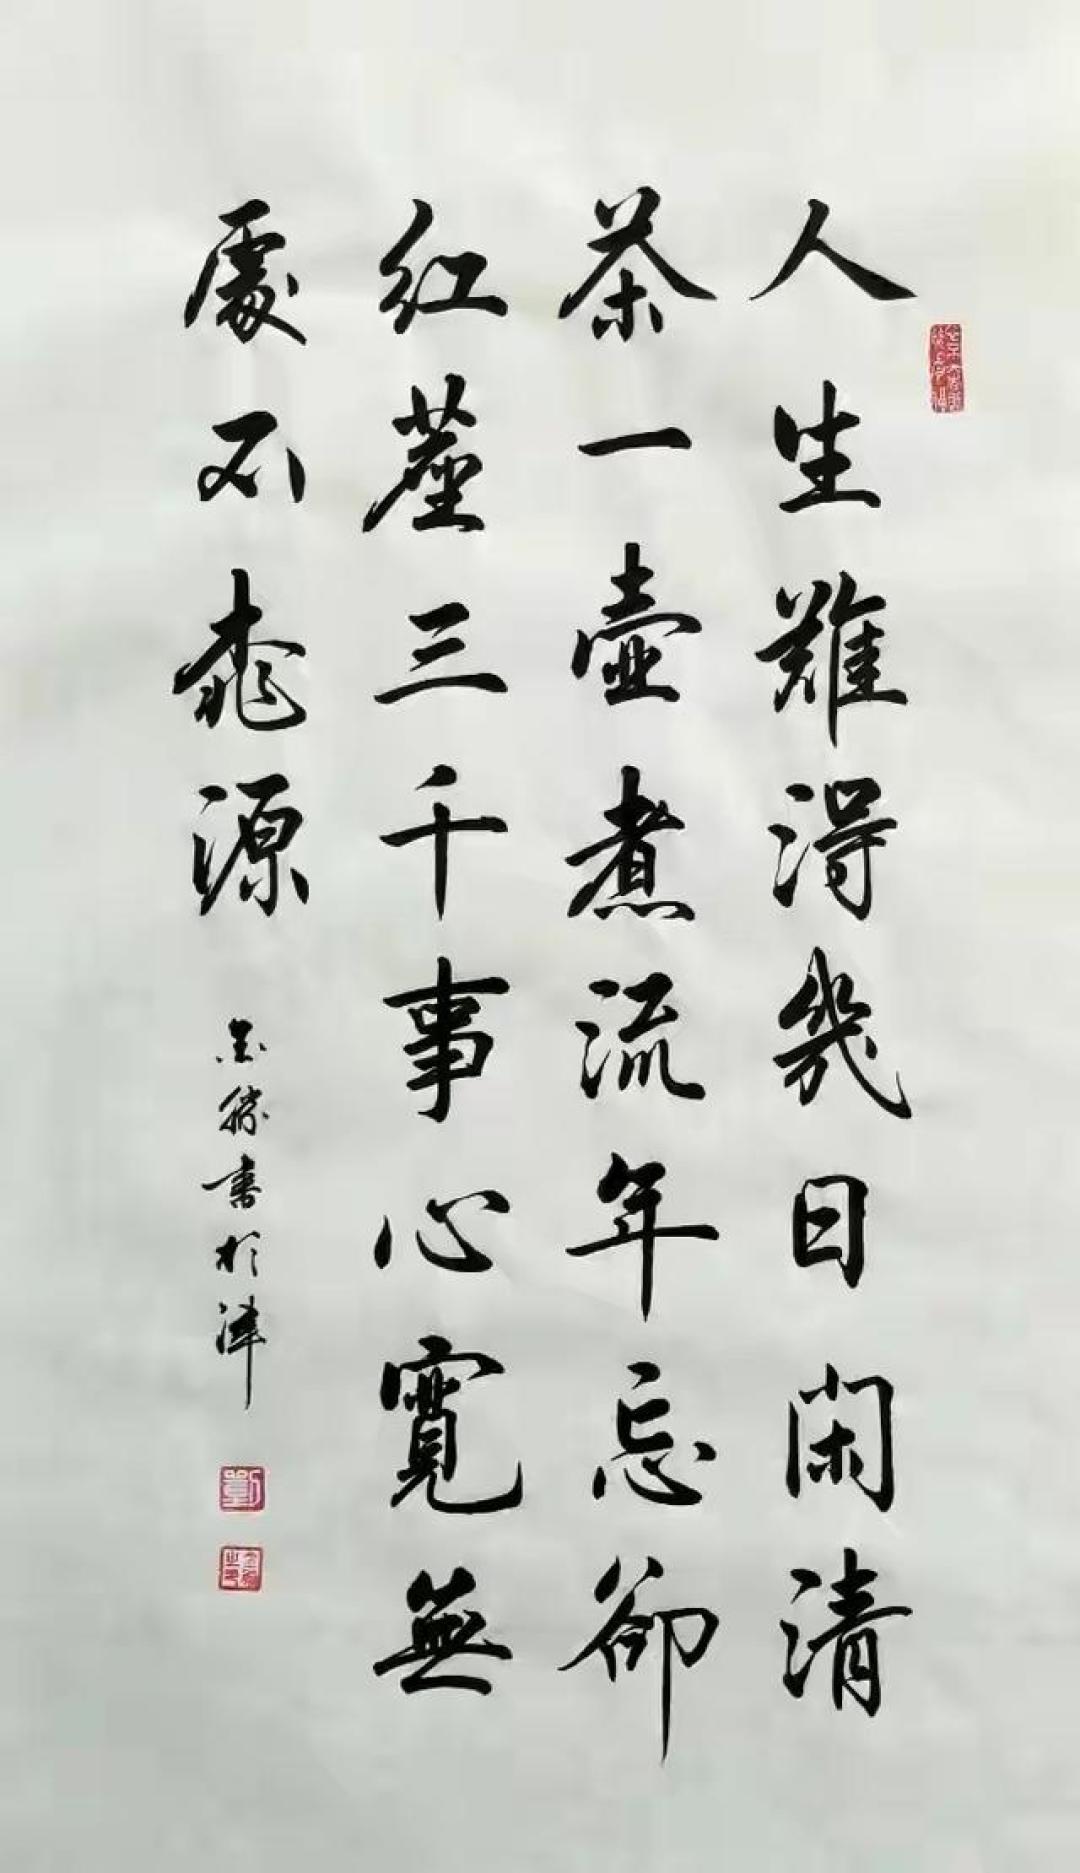 人生難得幾日閑清
茶一壺煮流年忘卻
紅塵三千事心寬無
處不桃源
金勝書於津
劉